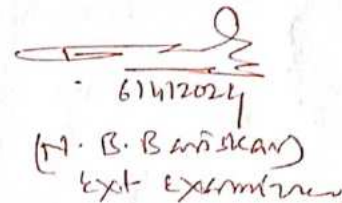 6/4/2024
(N. B. Bariskar)
Ext Examiner